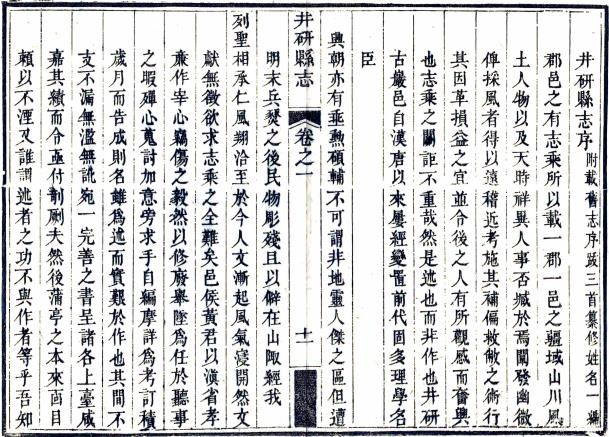 井研縣志序 附載舊志序跋三首纂修姓名一編
郡邑之有志乘所以載一郡一邑之疆域山川風
土人物以及天時祥異人事否臧於焉闡發幽微
俾採風者得以遠稽近考施其補偏救敝之術行
其因革損益之宜並令後之人有所觀感而奮興
也志乘之關詎不重哉然是述也而非作也井研
古巖邑自漢唐以來屢經變置前代固多理學名
臣
興朝亦有乘勲碩輔不可謂非地靈人傑之區但遭
井研縣志 卷之一 十一
明末兵燹之後民物彫殘且以僻在山陬經我
列聖相承仁風翔洽至於今人文漸起風氣寖開然文
獻無徵欲求志乘之全難矣邑侯黃君以滇省孝
亷作宰心竊傷之毅然以修廢舉墜為任於聽事
之暇殫心蒐討加意旁求手自編摩詳為考訂積
歲月而告成則名雖為述而實艱於作也其間不
支不漏無濫無訛宛一完善之書呈諸各上臺咸
嘉其績而令亟付剞劂夫然後蒲亭之本來面目
賴以不湮又誰謂述者之功不與作者等乎吾知